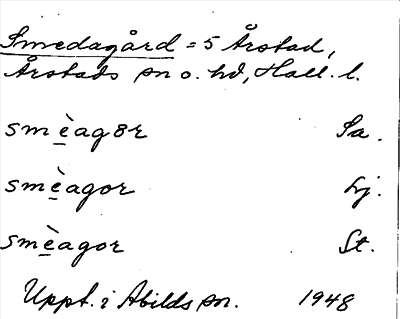 Smedagård = 5 Årstad,
Årstads sn o. hd, Hall. l.
smèag8r Sa.
smèagor Lj.
smèagor St.
Uppt. i Abilds sn. 1948